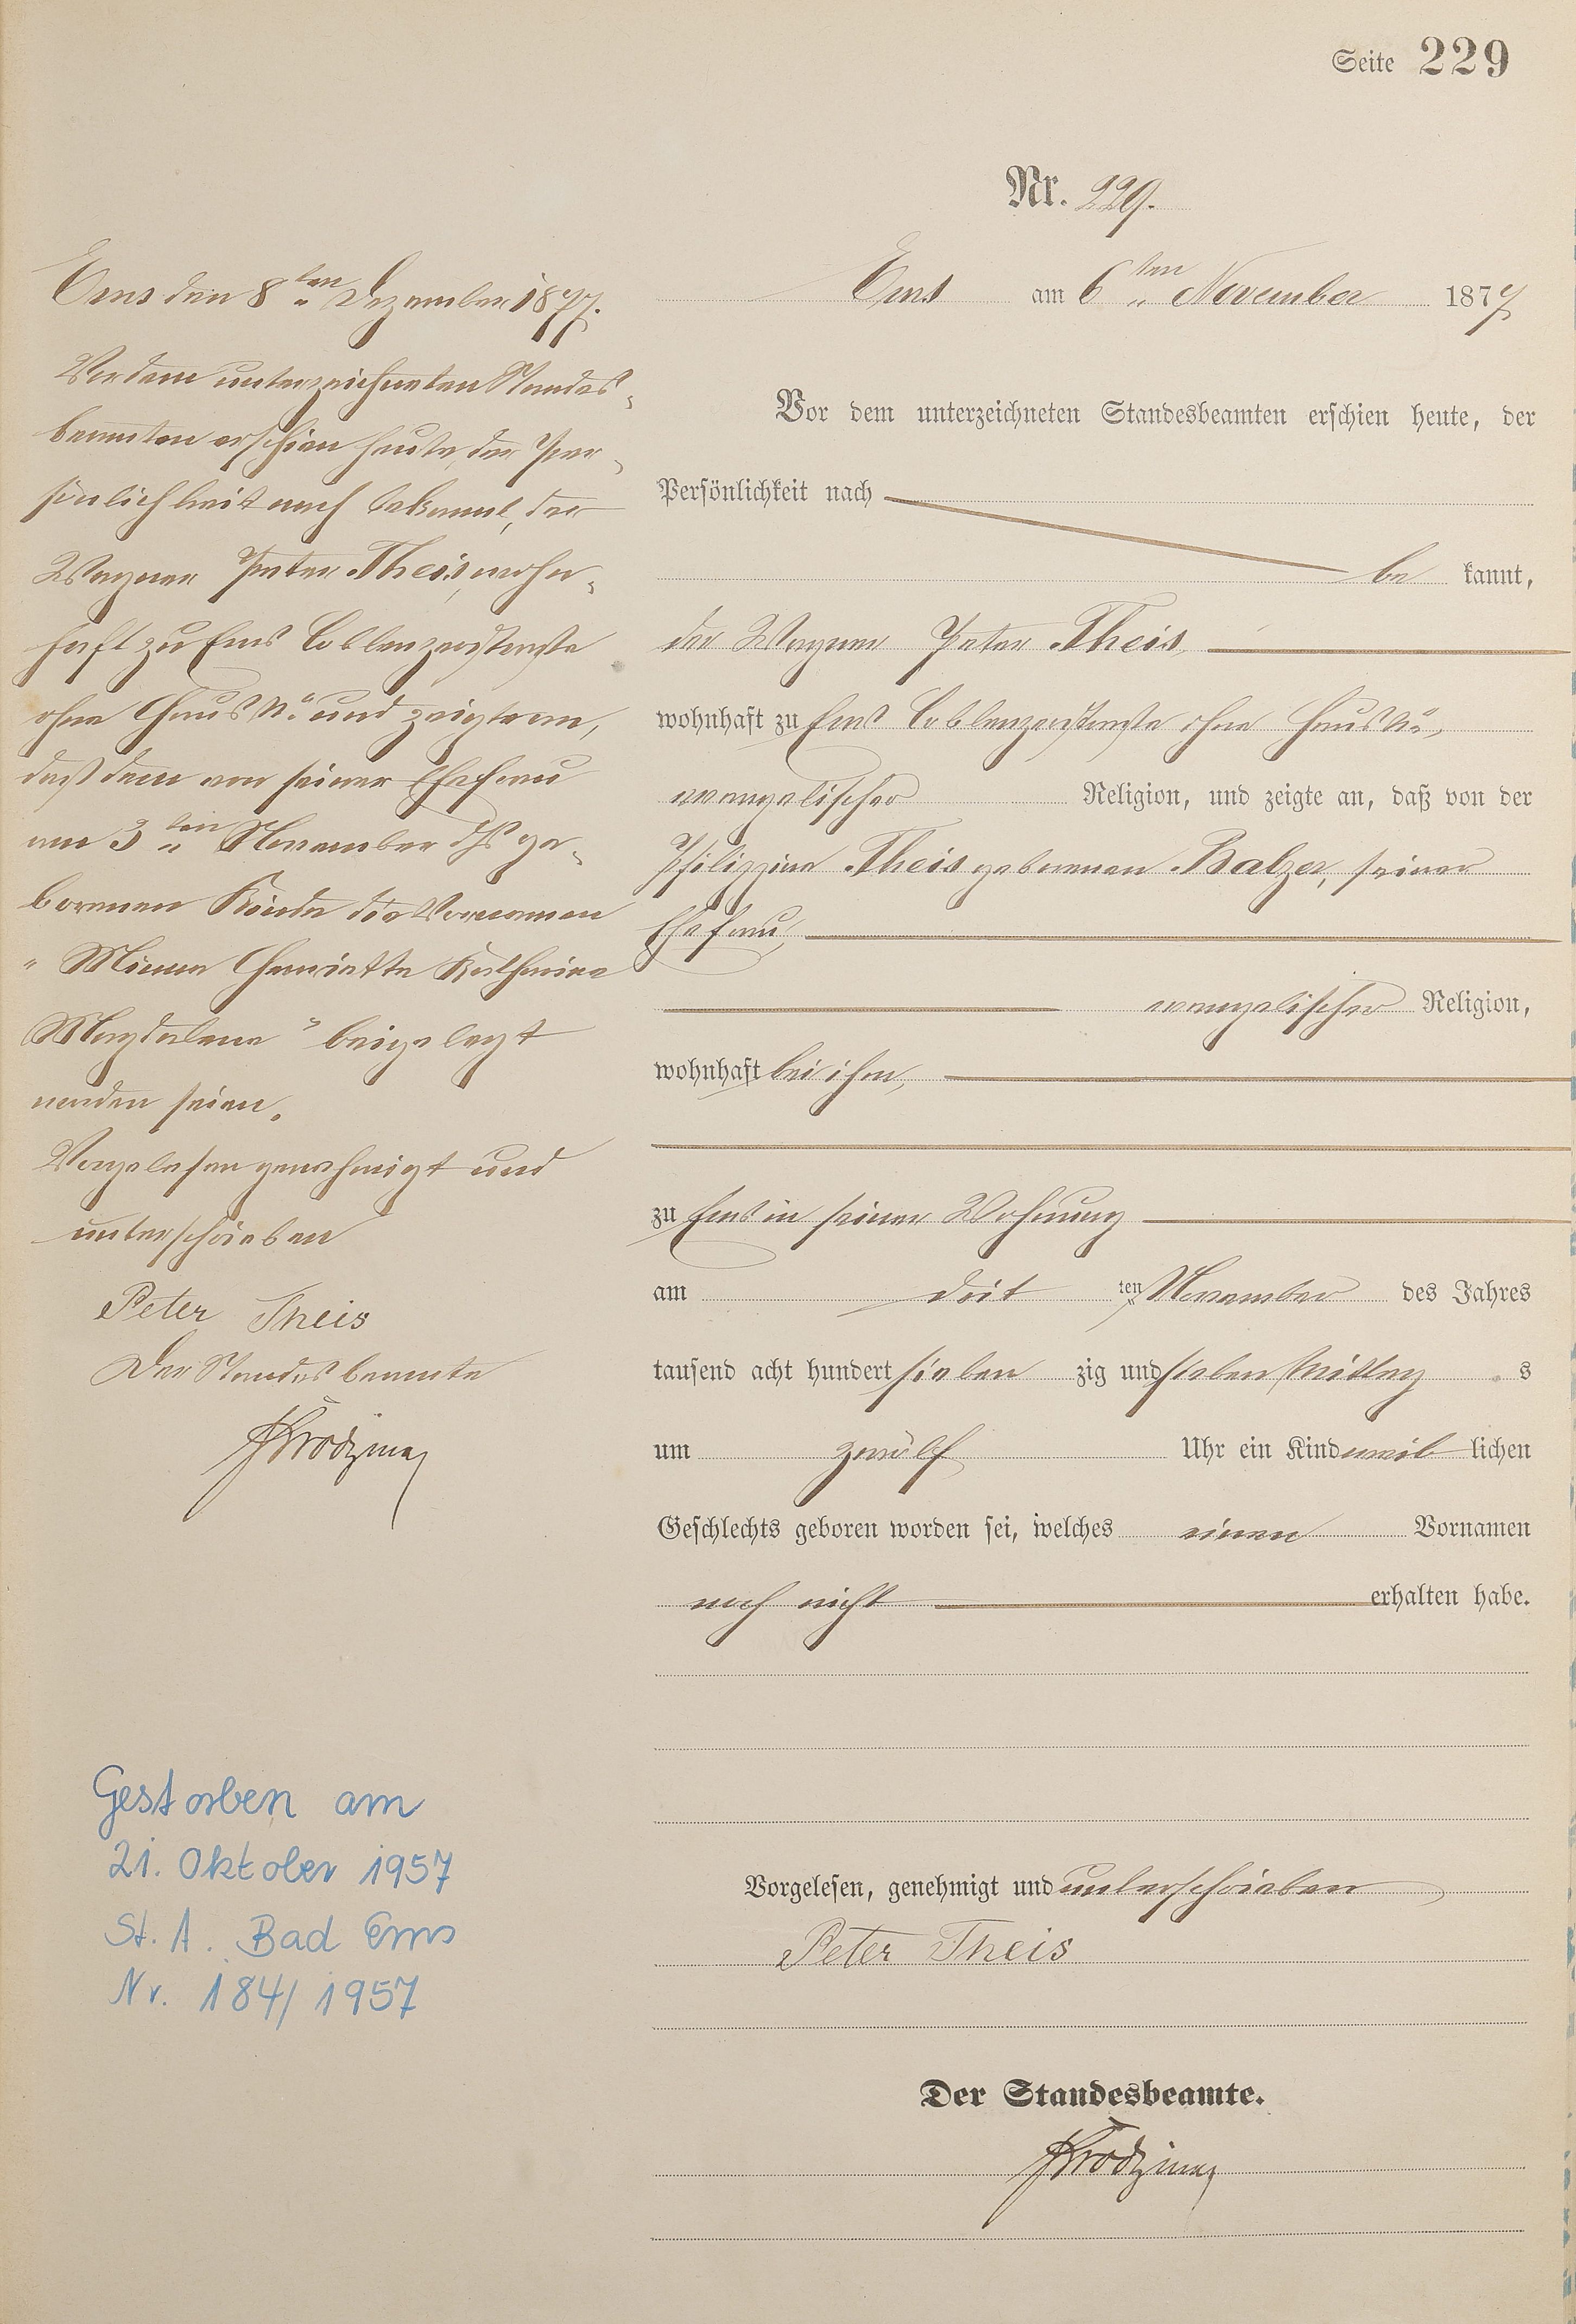 Seite 229
Nr. 229.
Ems am 6ten November 1877
Vor dem unterzeichneten Standesbeamten erschien heute, der
Persönlichkeit nach
be kannt,
der Wagner Peter Theis,
wohnhaft zu Ems Coblenzerstraße ohne Haus No,
evangelischer Religion, und zeigte an, daß von der
Philippine Theis geborenen Balzer, seiner
Ehefrau,
evangelischer Religion,
wohnhaft bei ihm,
zu Ems in seiner Wohnung
am dritten November des Jahres
tausend acht hundert sieben zig und sieben Mittag s
um zwölf Uhr ein Kind weib lichen
Geschlechts geboren worden sei, welches einen Vornamen
noch nicht erhalten habe.
Vorgelesen, genehmigt und unterschrieben
Peter Theis
Der Standesbeamte.
Ems den 8ten Dezember 1877.
Vor dem unterzeichneten Standes-
beamten erschien heute, der Per-
sönlichkeit nach bekannt, der
Wagner Peter Theis, wohn-
haft zu Ems Coblenzerstraße
ohne Haus No und zeigte an,
daß dem von seiner Ehefrau
am 3ten November ds Js ge-
borenen Kinde die Vornamen
"Minna Henriette Katharina
Magdalena" beigelegt
worden seien.
Vorgelesen genehmigt und
unterschrieben
Peter Theis
Der Standesbeamte
Gestorben am
21. Oktober 1957
St. A. Bad Ems
Nr. 184/1957